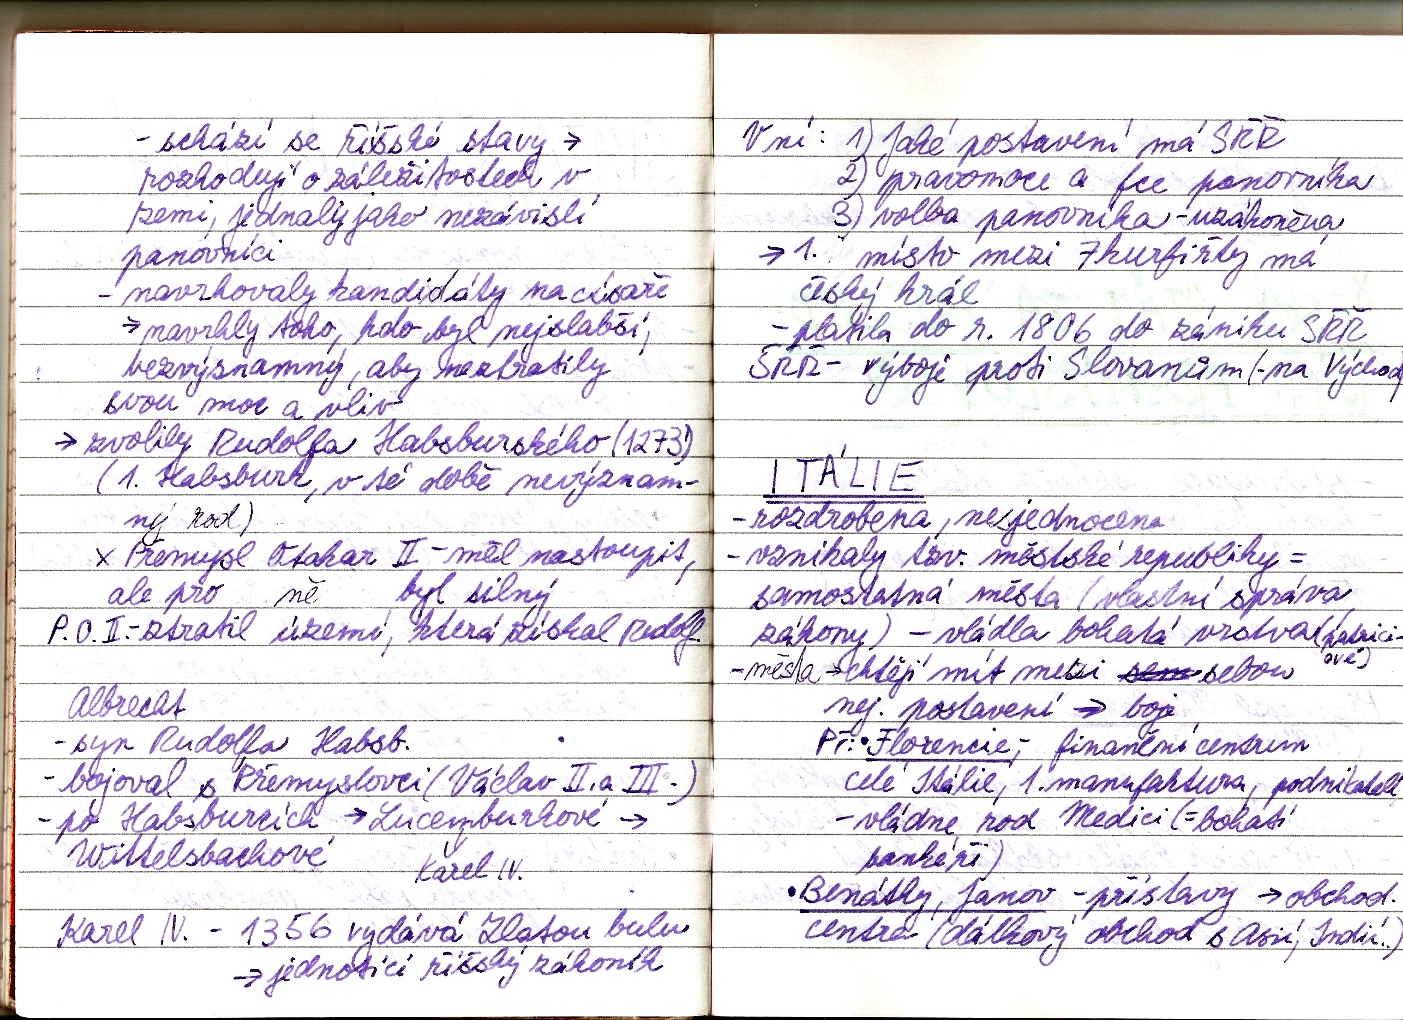 - schází se říšské stavy →
rozhodují o záležitostech v
zemi, jednaly jako nezávislí
panovníci
- navrhovaly kandidáty na císaře
→ navrhly toho, kdo byl nejslabší,
bezvýznamný, aby neztratily
svou moc a vliv
→ zvolily Rudolfa Habsburského (1273)
(1. Habsburk, v té době nevýznam-
ný rod)
x Přemysl Otakar II - měl nastoupit,
ale pro ně byl silný
P.O.II.- ztratil území, která získal Rudolf
Albrecht
- syn Rudolfa Habsb.
- bojoval s Přemyslovci (Václav II. a III.)
- po Habsburcích → Lucemburkové →
Wittelsbachové
Karel IV.
Karel IV. - 1356 vydává Zlatou bulu
→ jednotící říšský zákoník
V ní: 1) Jaké postavení má SŘŘ
2) pravomoce a fce panovníka
3) volba panovníka - uzákoněna
→ 1. místo mezi 7 kurfiřty má
český král
- platila do r. 1806 do zániku SŘŘ
SŘŘ - výboje proti Slovanům (- na Východ)
ITÁLIE
- rozdrobena, nesjednocena
- vznikaly tzv. městské republiky =
samostatná města (vlastní správa,
zákony) - vládla bohatá vrstva (patrici-
ové)
- města → chtějí mít mezi sebou
nej. postavení → boje
Př.: • Florencie - finanční centrum
celé Itálie, 1. manufaktura, podnikatelé
- vládne rod Medici (= bohatí
bankéři)
• Benátky, Janov - přístavy → obchod.
centra (dálkový obchod s Asií, Indií..)